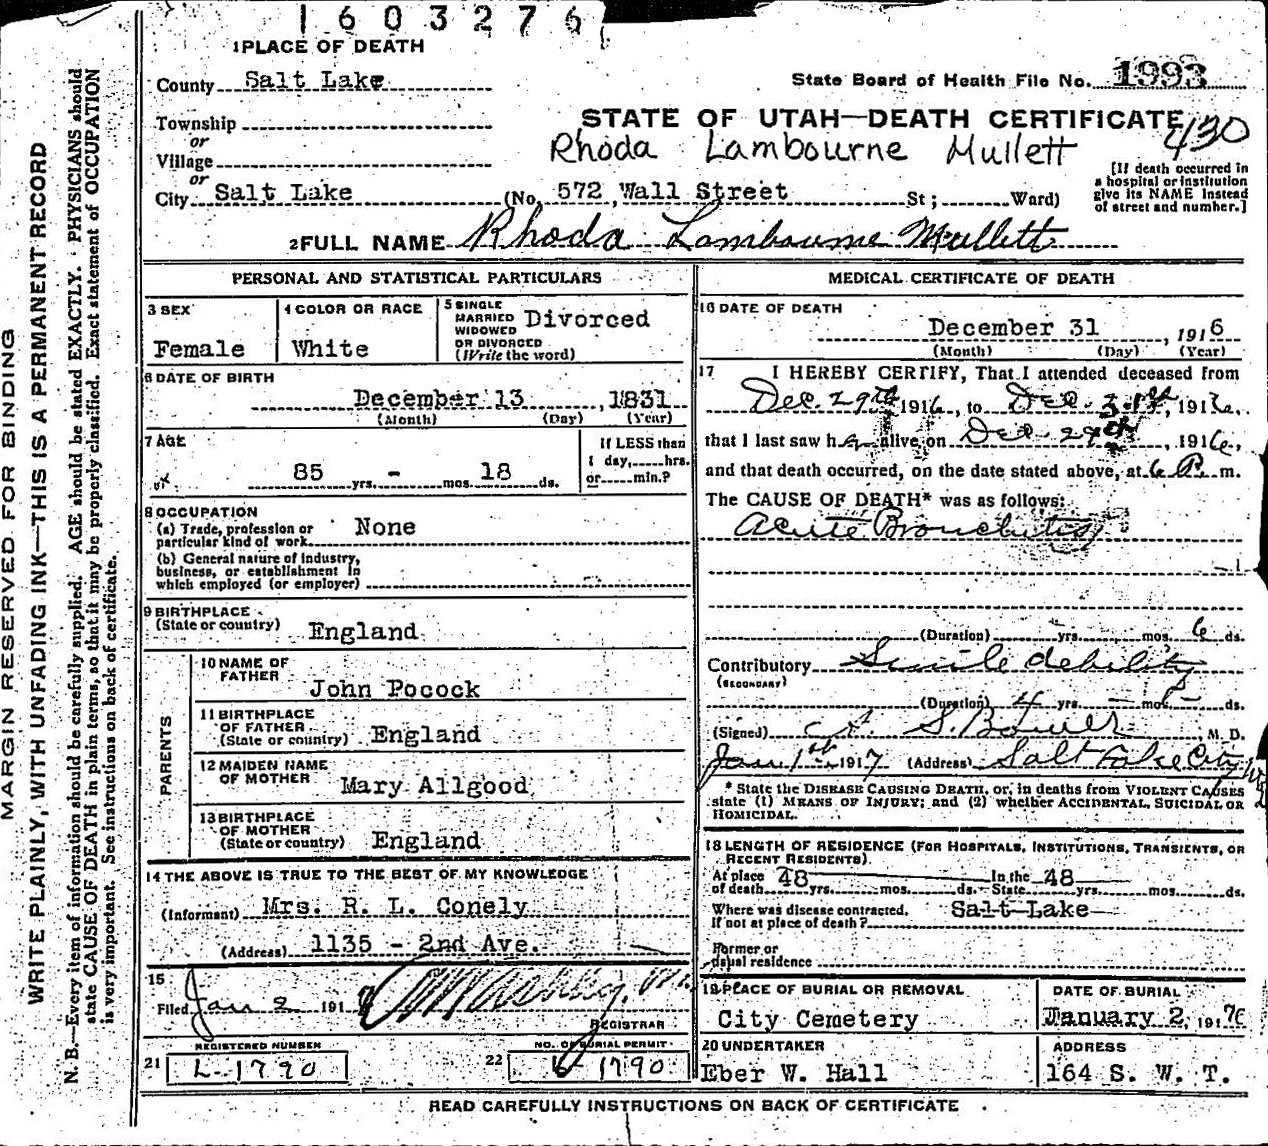 1603276
1 PLACE OF DEATH
County Salt Lake
State Board of Health File No. 1993
Township
or
Village
or
City Salt Lake (No. 572, Wall Street St; Ward)
STATE OF UTAH—DEATH CERTIFICATE
430
Rhoda Lambourne Mullett
[If death occurred in
a hospital or institution
give its NAME instead
of street and number.]
2 FULL NAME Rhoda Lambourne Mullett
PERSONAL AND STATISTICAL PARTICULARS
3 SEX
Female
4 COLOR OR RACE
White
5 SINGLE
MARRIED
WIDOWED
OR DIVORCED
(Write the word)
Divorced
6 DATE OF BIRTH
December 13, 1831
(Month) (Day) (Year)
7 AGE
85 yrs. - mos. 18 ds.
If LESS than
1 day, hrs.
or min.?
8 OCCUPATION
(a) Trade, profession or
particular kind of work None
(b) General nature of industry,
business, or establishment in
which employed (or employer)
9 BIRTHPLACE
(State or country) England
PARENTS
10 NAME OF
FATHER John Pocock
11 BIRTHPLACE
OF FATHER
(State or country) England
12 MAIDEN NAME
OF MOTHER Mary Allgood
13 BIRTHPLACE
OF MOTHER
(State or country) England
14 THE ABOVE IS TRUE TO THE BEST OF MY KNOWLEDGE
(Informant) Mrs. R. L. Conely
(Address) 1135 - 2nd Ave.
15
Filed Jan 2 1917
REGISTRAR
REGISTERED NUMBER
21 L-1790
NO. OF BURIAL PERMIT
22 L-1790
MEDICAL CERTIFICATE OF DEATH
16 DATE OF DEATH
December 31, 1916
(Month) (Day) (Year)
17 I HEREBY CERTIFY, That I attended deceased from
Dec. 29th 1916, to Dec. 31st, 1916,
that I last saw her alive on Dec. 29th, 1916,
and that death occurred, on the date stated above, at 6 P. m.
The CAUSE OF DEATH* was as follows:
Acute Bronchitis
(Duration) yrs. mos. 6 ds.
Contributory Senile debility
(SECONDARY)
(Duration) 4 yrs. - mos. - ds.
(Signed) S. Bower, M. D.
Jan 1st 1917 (Address) Salt Lake City
* State the DISEASE CAUSING DEATH, or, in deaths from VIOLENT CAUSES
state (1) MEANS OF INJURY; and (2) whether ACCIDENTAL, SUICIDAL OR
HOMICIDAL.
18 LENGTH OF RESIDENCE (FOR HOSPITALS, INSTITUTIONS, TRANSIENTS, OR
RECENT RESIDENTS).
At place 48 In the 48
of death yrs. mos. ds. State yrs. mos. ds.
Where was disease contracted, Salt Lake
If not at place of death?
Former or
usual residence
19 PLACE OF BURIAL OR REMOVAL
City Cemetery
DATE OF BURIAL
January 2, 1917
20 UNDERTAKER
Eber W. Hall
ADDRESS
164 S. W. T.
READ CAREFULLY INSTRUCTIONS ON BACK OF CERTIFICATE
MARGIN RESERVED FOR BINDING
WRITE PLAINLY, WITH UNFADING INK—THIS IS A PERMANENT RECORD
N. B.—Every item of information should be carefully supplied. AGE should be stated EXACTLY. PHYSICIANS should
state CAUSE OF DEATH in plain terms, so that it may be properly classified. Exact statement of OCCUPATION
is very important. See instructions on back of certificate.